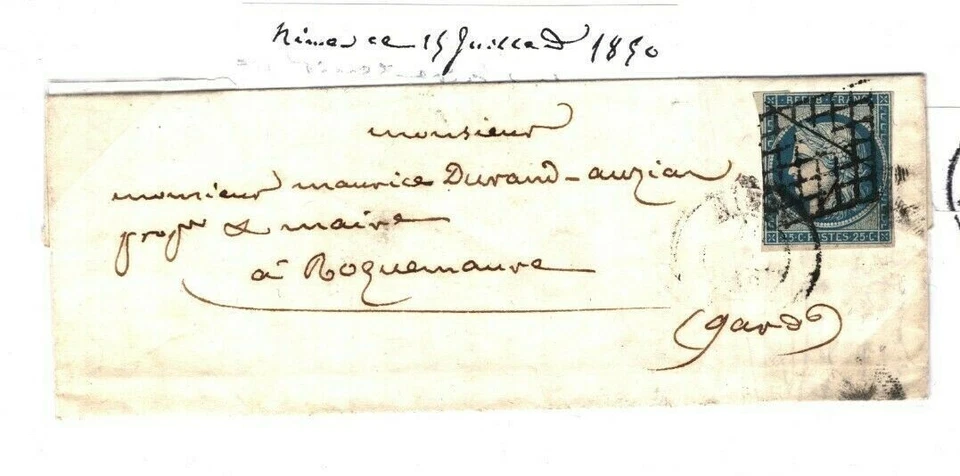 Nimes ce 15 Juillet 1850
monsieur
monsieur maurice Durand-auzias
propre & maire
à Roquemaure
(gard)
REPUB. FRANC.
25·C·POSTES 25·C·